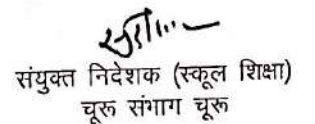 संयुक्त निदेशक (स्कूल शिक्षा)
चूरू संभाग चूरू